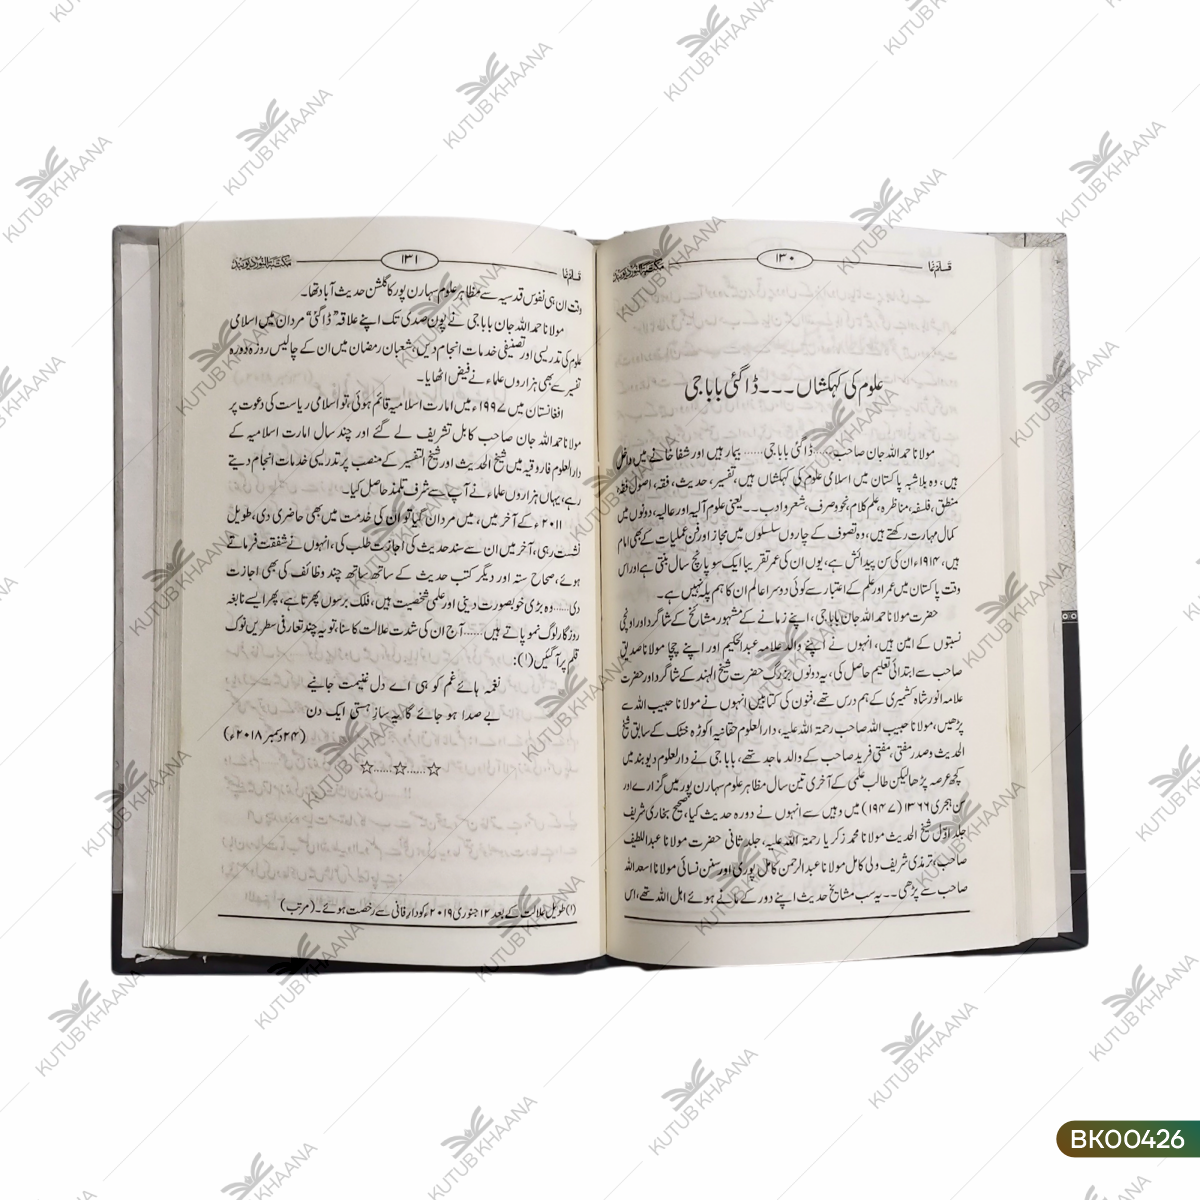 ۱۳۰
علوم کی کہکشاں۔۔۔ڈاگئی باباجی
مولانا حمد اللہ جان صاحب......ڈاگئی باباجی...... بیمار ہیں اور شفا خانے میں داخل
ہیں، وہ بلاشبہ پاکستان میں اسلامی علوم کی کہکشاں ہیں، تفسیر، حدیث، فقہ، اصول فقہ،
منطق، فلسفہ، مناظرہ، علم کلام، نحو وصرف، شعر وادب۔۔یعنی علوم آلیہ اور عالیہ، دونوں میں
کمال مہارت رکھتے ہیں، وہ تصوف کے چاروں سلسلوں میں مجاز اور فن عملیات کے بھی امام
ہیں، ۱۹۱۴ء ان کی سن پیدائش ہے، یوں ان کی عمر تقریباً ایک سو پانچ سال بنتی ہے اور اس
وقت پاکستان میں عمر اور علم کے اعتبار سے کوئی دوسرا عالم ان کا ہم پلہ نہیں ہے۔
حضرت مولانا حمد اللہ جان باباجی، اپنے زمانے کے مشہور مشائخ کے شاگرد اور اونچی
نسبتوں کے امین ہیں، انہوں نے اپنے والد علامہ عبدالحکیم اور اپنے چچا مولانا صدیق
صاحب سے ابتدائی تعلیم حاصل کی، یہ دونوں بزرگ حضرت شیخ الہند کے شاگرد اور حضرت
علامہ انور شاہ کشمیری کے ہم درس تھے، فنون کی کتابیں انہوں نے مولانا حبیب اللہ سے
پڑھیں، مولانا حبیب اللہ صاحب رحمۃ اللہ علیہ، دارالعلوم حقانیہ اکوڑہ خٹک کے سابق شیخ
الحدیث وصدر مفتی، مفتی فرید صاحب کے والد ماجد تھے، باباجی نے دارالعلوم دیوبند میں
کچھ عرصہ پڑھا لیکن طالب علمی کے آخری تین سال مظاہر علوم سہارن پور میں گزارے اور
سن ہجری ۱۳۶۶ (۱۹۴۷) میں وہیں سے انہوں نے دورہ حدیث کیا، صحیح بخاری شریف
جلد اوّل شیخ الحدیث مولانا محمد زکریا رحمۃ اللہ علیہ، جلد ثانی حضرت مولانا عبداللطیف
صاحب، ترمذی شریف ولی کامل مولانا عبدالرحمن کامل پوری اور سنن نسائی مولانا اسعد اللہ
صاحب سے پڑھی۔۔یہ سب مشایخ حدیث اپنے دور کے مانے ہوئے اہل اللہ تھے، اس
مکتبۃ النور دیوبند
۱۳۱
وقت ان ہی نفوس قدسیہ سے مظاہر علوم سہارن پور کا گلشن حدیث آباد تھا۔
مولانا حمد اللہ جان باباجی نے پون صدی تک اپنے علاقہ "ڈاگئی" مردان میں اسلامی
علوم کی تدریسی اور تصنیفی خدمات انجام دیں، شعبان رمضان میں ان کے چالیس روزہ دورہ
تفسیر سے بھی ہزاروں علماء نے فیض اٹھایا۔
افغانستان میں ۱۹۹۷ء میں امارت اسلامیہ قائم ہوئی، تو اسلامی ریاست کی دعوت پر
مولانا حمد اللہ جان صاحب کابل تشریف لے گئے اور چند سال امارت اسلامیہ کے
دارالعلوم فاروقیہ میں شیخ الحدیث اور شیخ التفسیر کے منصب پر تدریسی خدمات انجام دیتے
رہے، یہاں ہزاروں علماء نے آپ سے شرف تلمذ حاصل کیا۔
۲۰۱۱ء کے آخر میں، میں مردان گیا تو ان کی خدمت میں بھی حاضری دی، طویل
نشست رہی، آخر میں ان سے سند حدیث کی اجازت طلب کی، انہوں نے شفقت فرماتے
ہوئے، صحاح ستہ اور دیگر کتب حدیث کے ساتھ ساتھ چند وظائف کی بھی اجازت
دی......وہ بڑی خوبصورت دینی اور علمی شخصیت ہیں، فلک برسوں پھرتا ہے، پھر ایسے نابغہ
روزگار لوگ نمو پاتے ہیں......آج ان کی شدت علالت کا سنا، تو یہ چند تعارفی سطریں نوک
قلم پر آگئیں(۱):
نغمہ ہائے غم کو ہی اے دل غنیمت جانیے
بے صدا ہو جائے گا یہ ساز ہستی ایک دن
(۲۴ دسمبر ۲۰۱۸ء)
☆......☆......☆
(۱) طویل علالت کے بعد ۱۲ جنوری ۲۰۱۹ء کو دار فانی سے رخصت ہوئے۔ (مرتب)
KUTUB KHAANA
BK00426